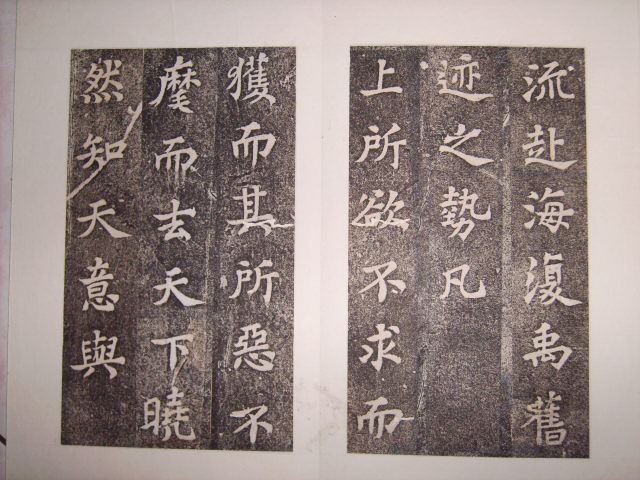 流赴海復禹舊
迹之勢凡
上所欲不求而
獲而其所惡不
麾而去天下曉
然知天意與